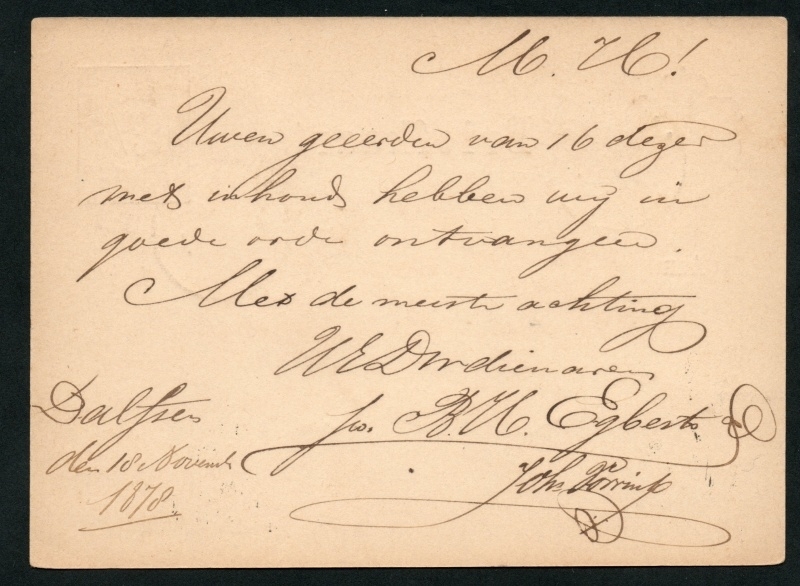 M. H!
Uwen geëerden van 16 dezer
met inhoud hebben wij in
goede orde ontvangen.
Met de meeste achting
UEDwdienaren
B. H. Egberts
Dalfsen
den 18 Novemb
1878.
Joh.